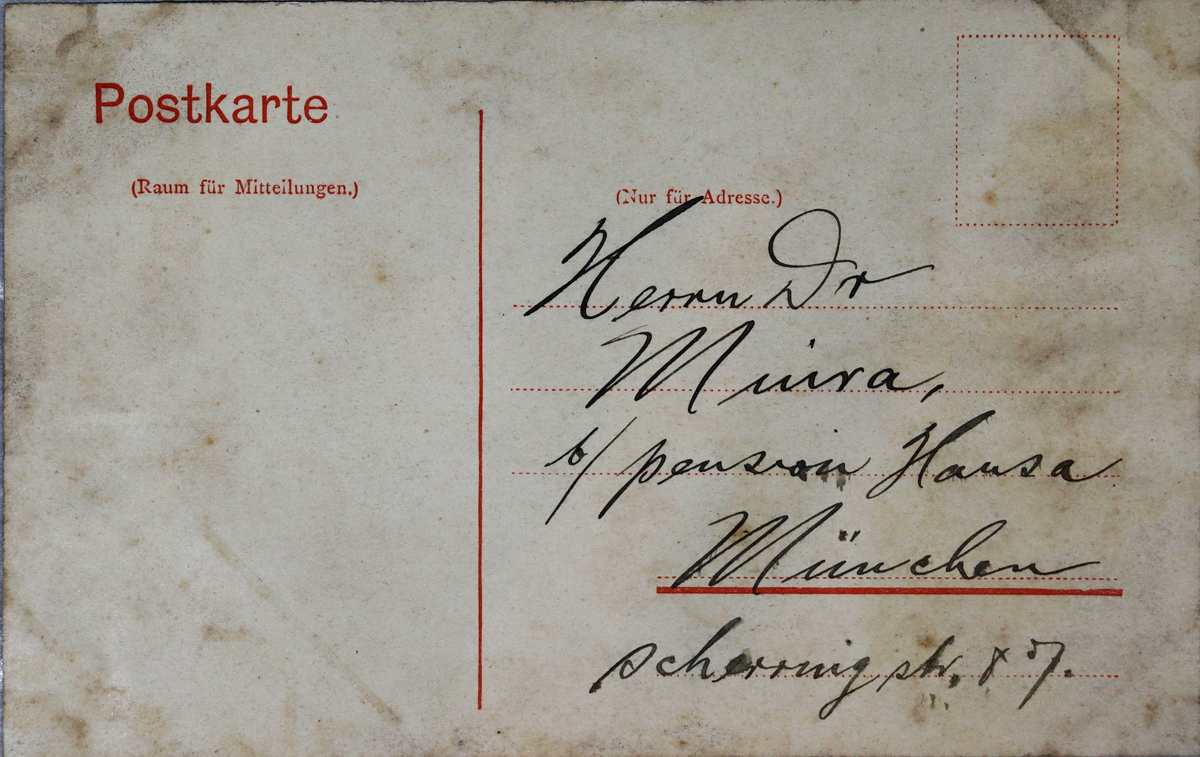 Postkarte
(Raum für Mitteilungen.)
(Nur für Adresse.)
Herrn Dr
Miura,
b/ pension Hansa
München
scherringstr.